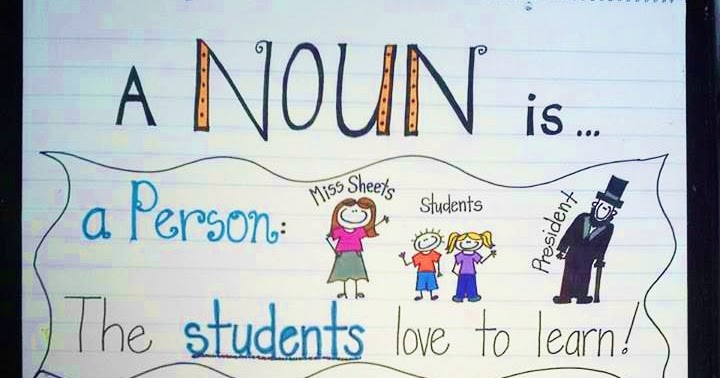 A NOUN is...
a Person:
Miss Sheets
Students
President
The students love to learn!